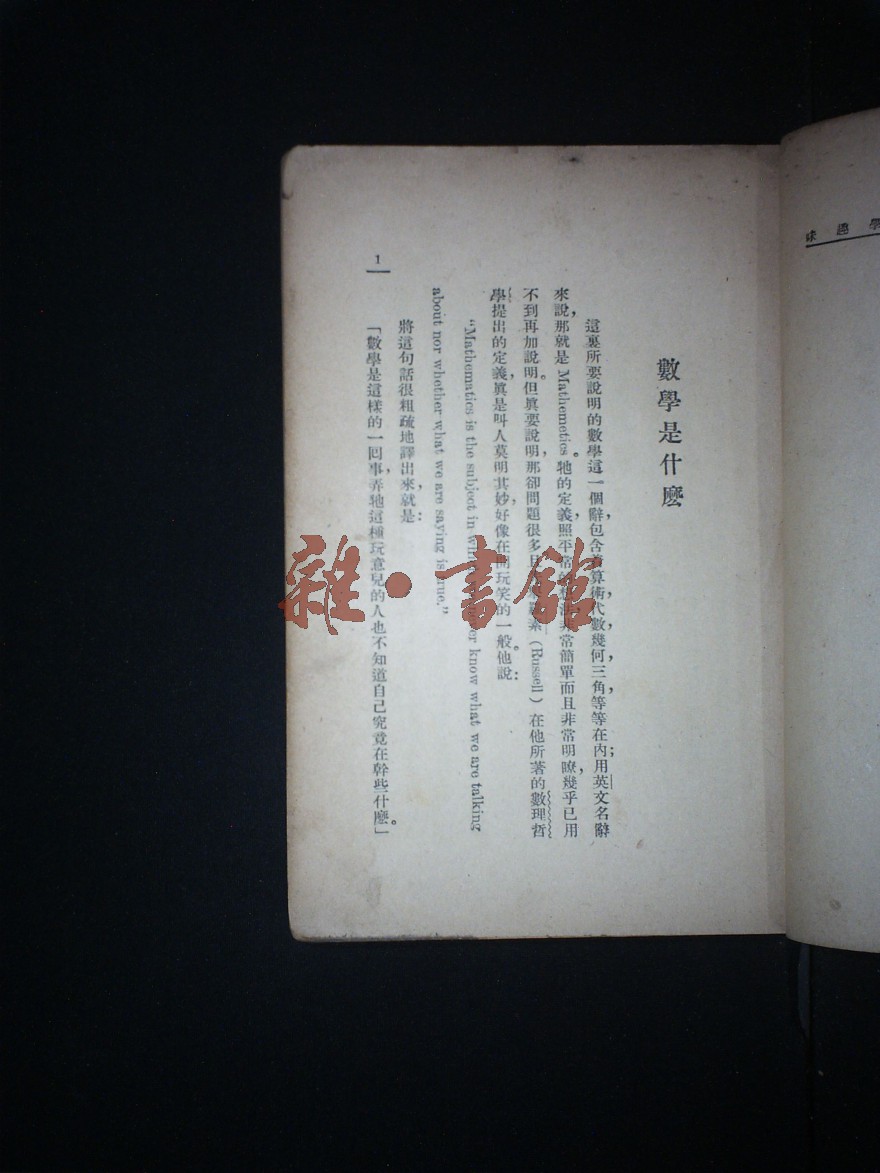 數學是什麼
這裏所要說明的數學這一個辭,包含算術,代數,幾何,三角,等等在內;用英文名辭
來說,那就是Mathemetics。牠的定義,照平常非常簡單而且非常明瞭,幾乎已用
不到再加說明。但眞要說明,那卻問題很多且素(Russell)在他所著的數理哲
學提出的定義,眞是叫人莫明其妙,好像在開玩笑的一般。他說:
"Mathematics is the subject in know what we are talking
about nor whether what we are saying is true."
將這句話很粗疏地譯出來,就是:
「數學是這樣的一回事,弄牠這種玩意兒的人也不知道自己究竟在幹些什麼。」
1
學趣味
雜·書館